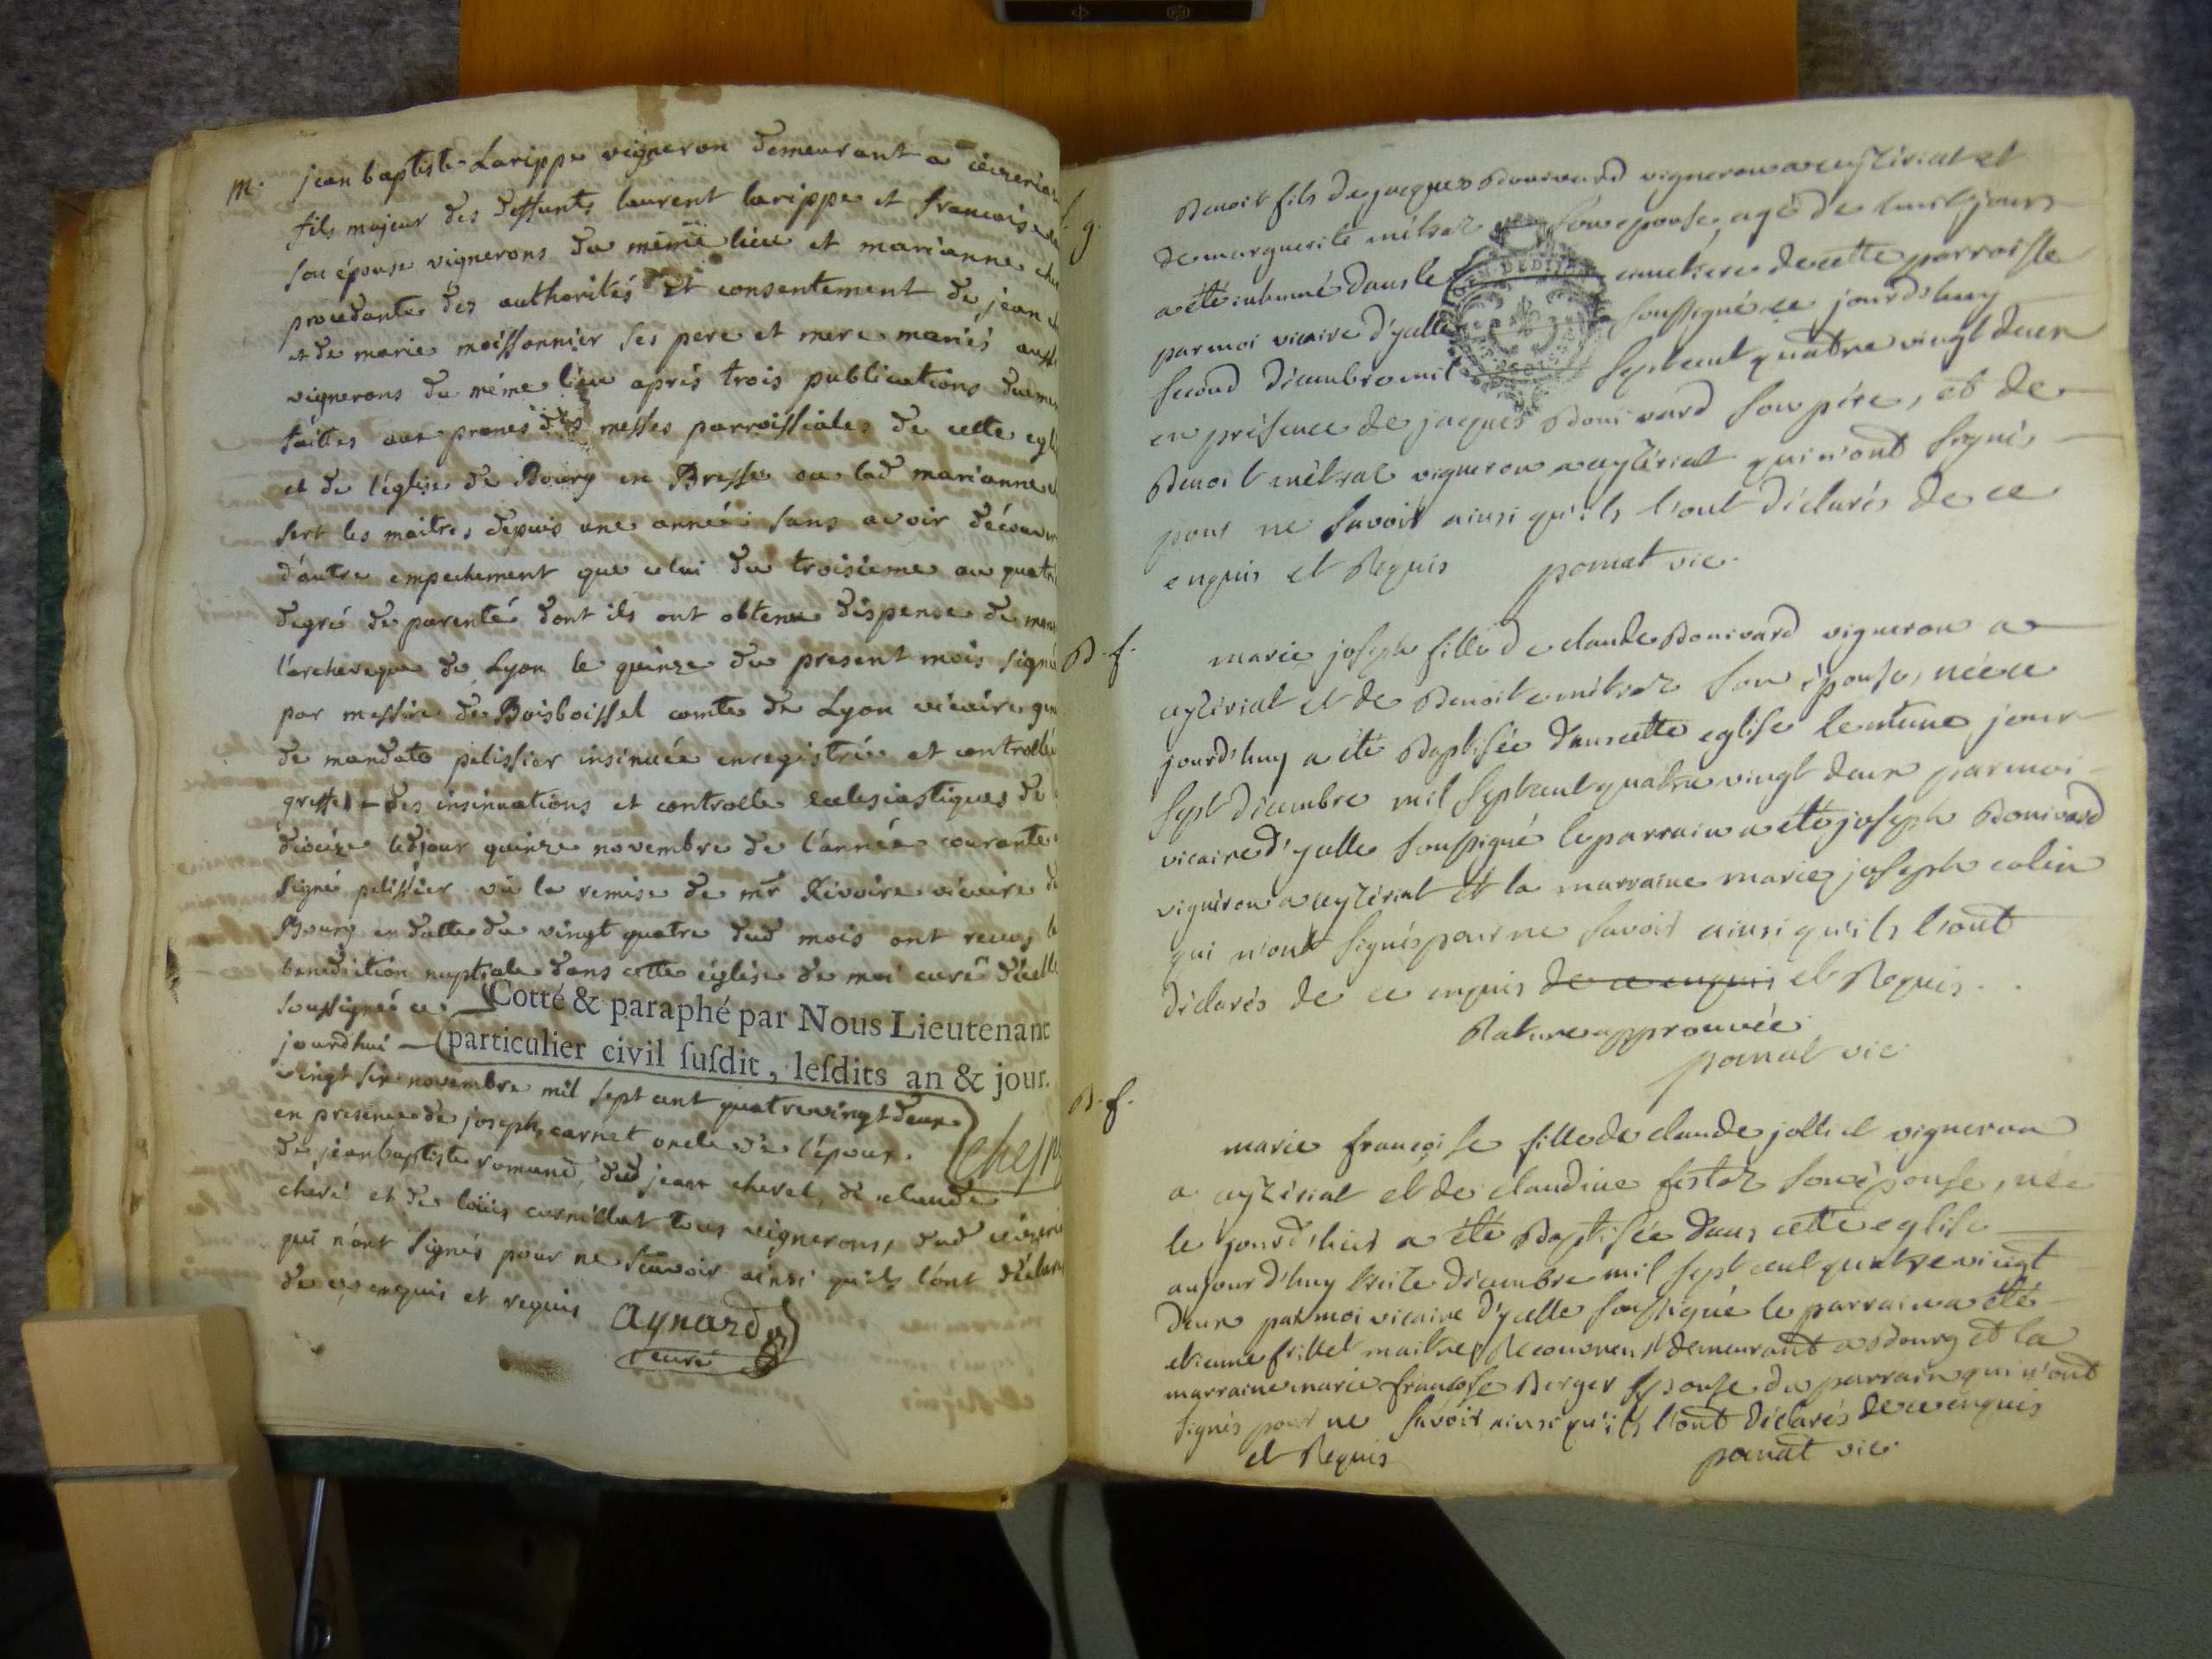 m. jean baptiste Larippe vigneron demeurant a
fils majeur des deffunts laurent larippe et francoise
son épouse vignerons du même lieu et marianne
procedante des authorités et consentement de jean
et de marie moissonnier ses pere et mere mariés aussi
vignerons du même lieu aprés trois publications
faittes aux prones des messes parroissiales de cette
et de l'église de Bourg en Bresse ou lad marianne
sert les maitres depuis une année sans avoir
d'autre empechement que celui du troisieme au
degré de parenté dont ils ont obtenu dispense de
l'archeveque de Lyon le quinze du present mois signé
par messire de Boisboissel comte de Lyon vicaire
de mandato pelissier insinuée enregistrée et controllée
greffe des insinuations et controlle ecclesiastiques de
diocèze ledjour quinze novembre de l'année courante
signé pelissier vû la remise de mr Rivoire vicaire de
Bourg en datte du vingt quatre dud mois ont recus la
benediction nuptiale dans cette église de moi curé d'icelle
soussigné ce
Cotté & paraphé par Nous Lieutenant
jourdhui
particulier civil susdit, lesdits an & jour.
vingt six novembre mil sept cent quatrevingt deux
en presence de joseph carnet oncle de l'époux
de jean baptiste romand, dud jean chevet, de claude
et de loüis cornillat tous vignerons, dud
qui n'ont signés pour ne sçavoir ainsi qu'ils l'ont
de ce enquis et requis
Aynard
curé
g.
Benoit fils de jacques Bonivard vigneron a ceyzeriat et
de marguerite métraz son epouse, agé de huit jours
a été inhumé dans le cimetiere de cette parroisse
par moi vicaire d'ycelle soussigné ce jourd'huy
second décembre mil septcent quatre vingt deux
en présence de jacques Bonivard son père, et de
Benoit métraz vigneron a ceyzériat qui n'ont signés
pour ne savoir ainsi qu'ils l'ont déclarés de ce
enquis et Requis pomat vic.
B. f.
marie joseph fille de claude Bonivard vigneron a
ceyzériat et de Benoite métraz son épouse, née ce
jourd'huy a été Baptisée dans cette eglise le même jour
sept décembre mil septcent quatre vingt deux par moi
vicaire d'ycelle soussigné le parrain a été joseph Bonivard
vigneron a ceyzériat et la marraine marie joseph colin
qui n'ont signés pour ne savoir ainsi qu'ils l'ont
déclarés de ce enquis de ce enquis et Requis.
Rature approuvée
pomat vic
B. f.
marie françoise fille de claude jolliet vigneron
a ceyzériat et de claudine festaz son épouse, née
le jourd'hier a été Baptisée dans cette eglise
aujourd'huy treize décembre mil sept cent quatre vingt
deux par moi vicaire d'ycelle soussigné le parrain a été
etienne frillet maitre Recouvreur demeurant a Bourg et la
marraine marie françoise Berger Epouse du parrain qui n'ont
signés pour ne savoir ainsi qu'ils l'ont déclarés de ce enquis
et Requis pomat vic